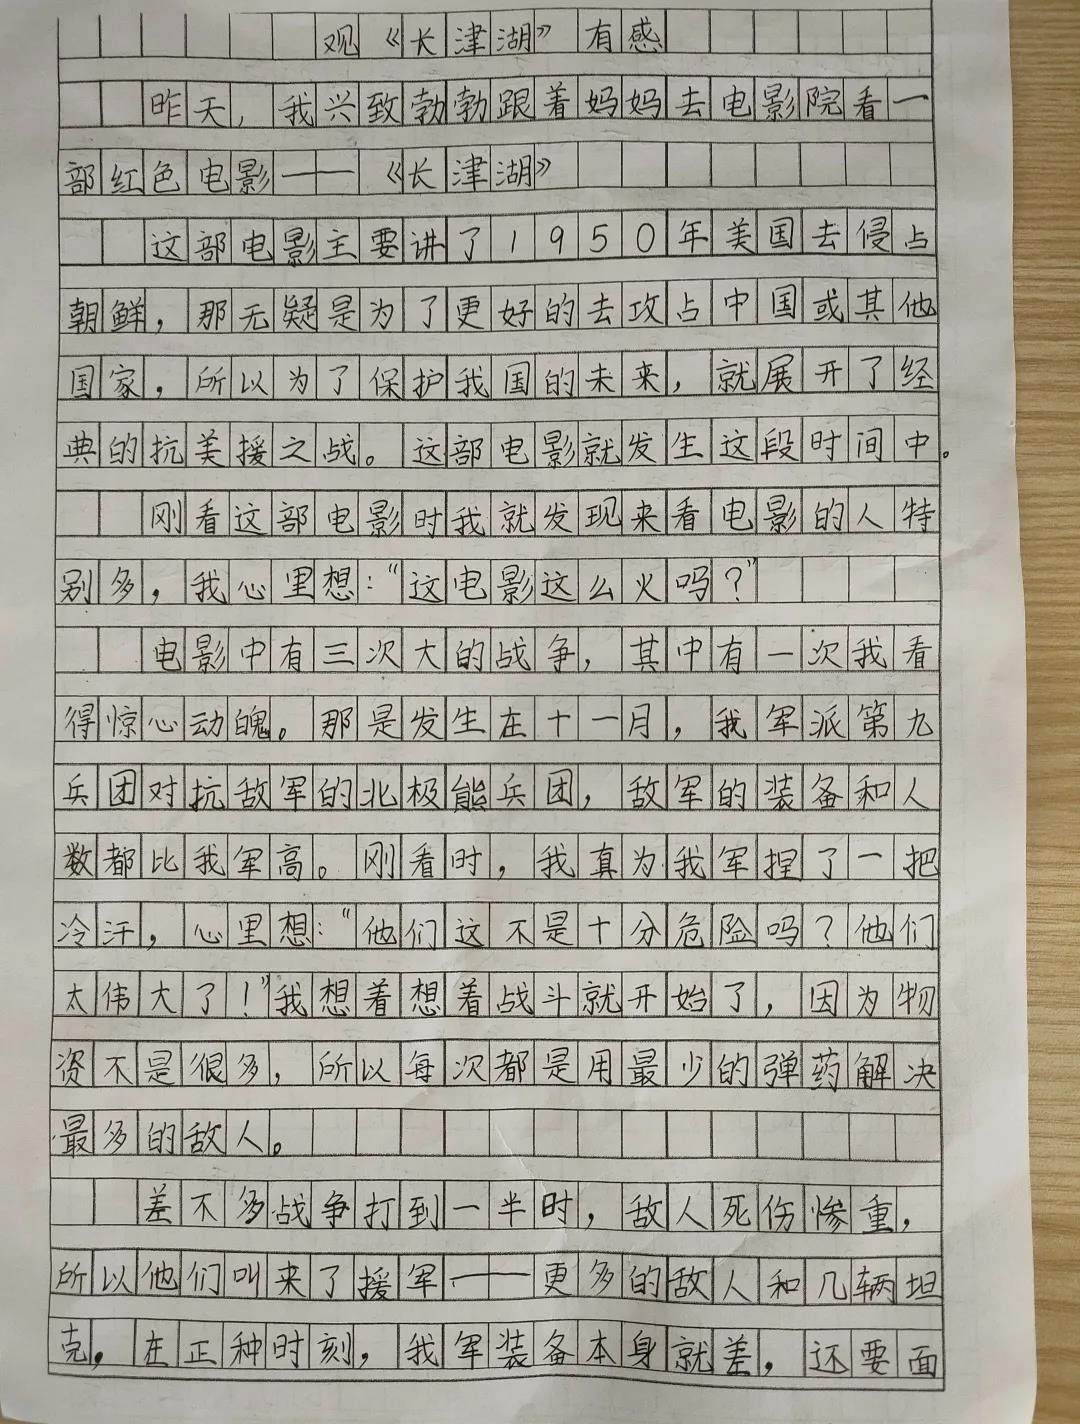 观《长津湖》有感
昨天，我兴致勃勃跟着妈妈去电影院看一
部红色电影——《长津湖》
这部电影主要讲了1950年美国去侵占
朝鲜，那无疑是为了更好的去攻占中国或其他
国家，所以为了保护我国的未来，就展开了经
典的抗美援之战。这部电影就发生这段时间中。
刚看这部电影时我就发现来看电影的人特
别多，我心里想：“这电影这么火吗？”
电影中有三次大的战争，其中有一次我看
得惊心动魄。那是发生在十一月，我军派第九
兵团对抗敌军的北极熊兵团，敌军的装备和人
数都比我军高。刚看时，我真为我军捏了一把
冷汗，心里想：“他们这不是十分危险吗？他们
太伟大了！”我想着想着战斗就开始了，因为物
资不是很多，所以每次都是用最少的弹药解决
最多的敌人。
差不多战争打到一半时，敌人死伤惨重，
所以他们叫来了援军——更多的敌人和几辆坦
克，在正种时刻，我军装备本身就差，还要面